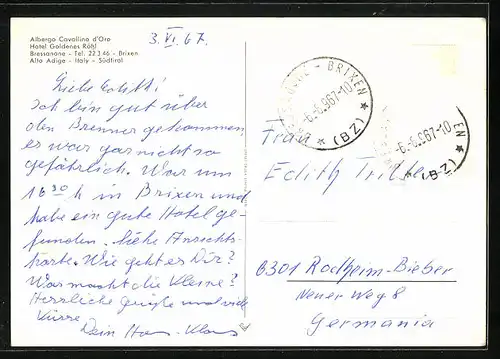 Albergo Cavallino d'Oro
Hotel Goldenes Rößl
Bressanone - Tel. 22346 - Brixen
Alto Adige - Italy - Südtirol
3. VI. 67.
Liebe Edith!
Ich bin gut über
den Brenner gekommen,
es war gar nicht so
gefährlich. War um
16 30 h in Brixen und
habe ein gute Hotel ge-
funden. Siehe Ansichts-
karte. Wie geht es Dir?
Was macht die Kleine?
Herrliche Grüße und viele
Küsse
Dein Hans-Klaus
- BRIXEN
-6.-6.967-10
(BZ)
-6.-6.967-10
(BZ)
Frau
Edith
6301 Rodheim-Bieber
Neuer Weg 8
Germania